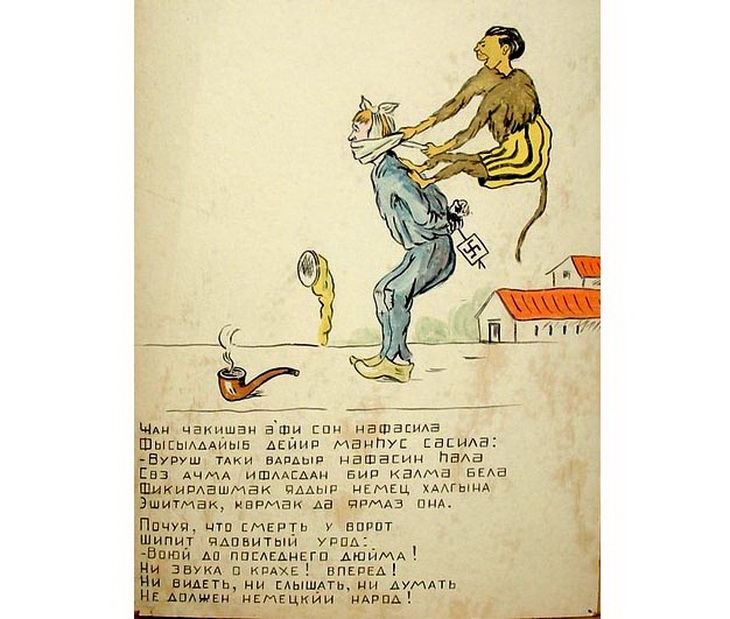 Ҹан чакишан а'фи сон нафасила
Фысылдайыб дейир манһус сасила:
-Вуруш таки вардыр нафасин һала
Сөз ачма ифласдан бир калма бела
Фикирлашмак яддыр немец халгына
Эшитмак, көрмак да ярмаз она.
Почуя, что смерть у ворот
Шипит ядовитый урод:
-Воюй до последнего дюйма!
Ни звука о крахе! вперед!
Ни видеть, ни слышать, ни думать
Не должен немецкий народ!